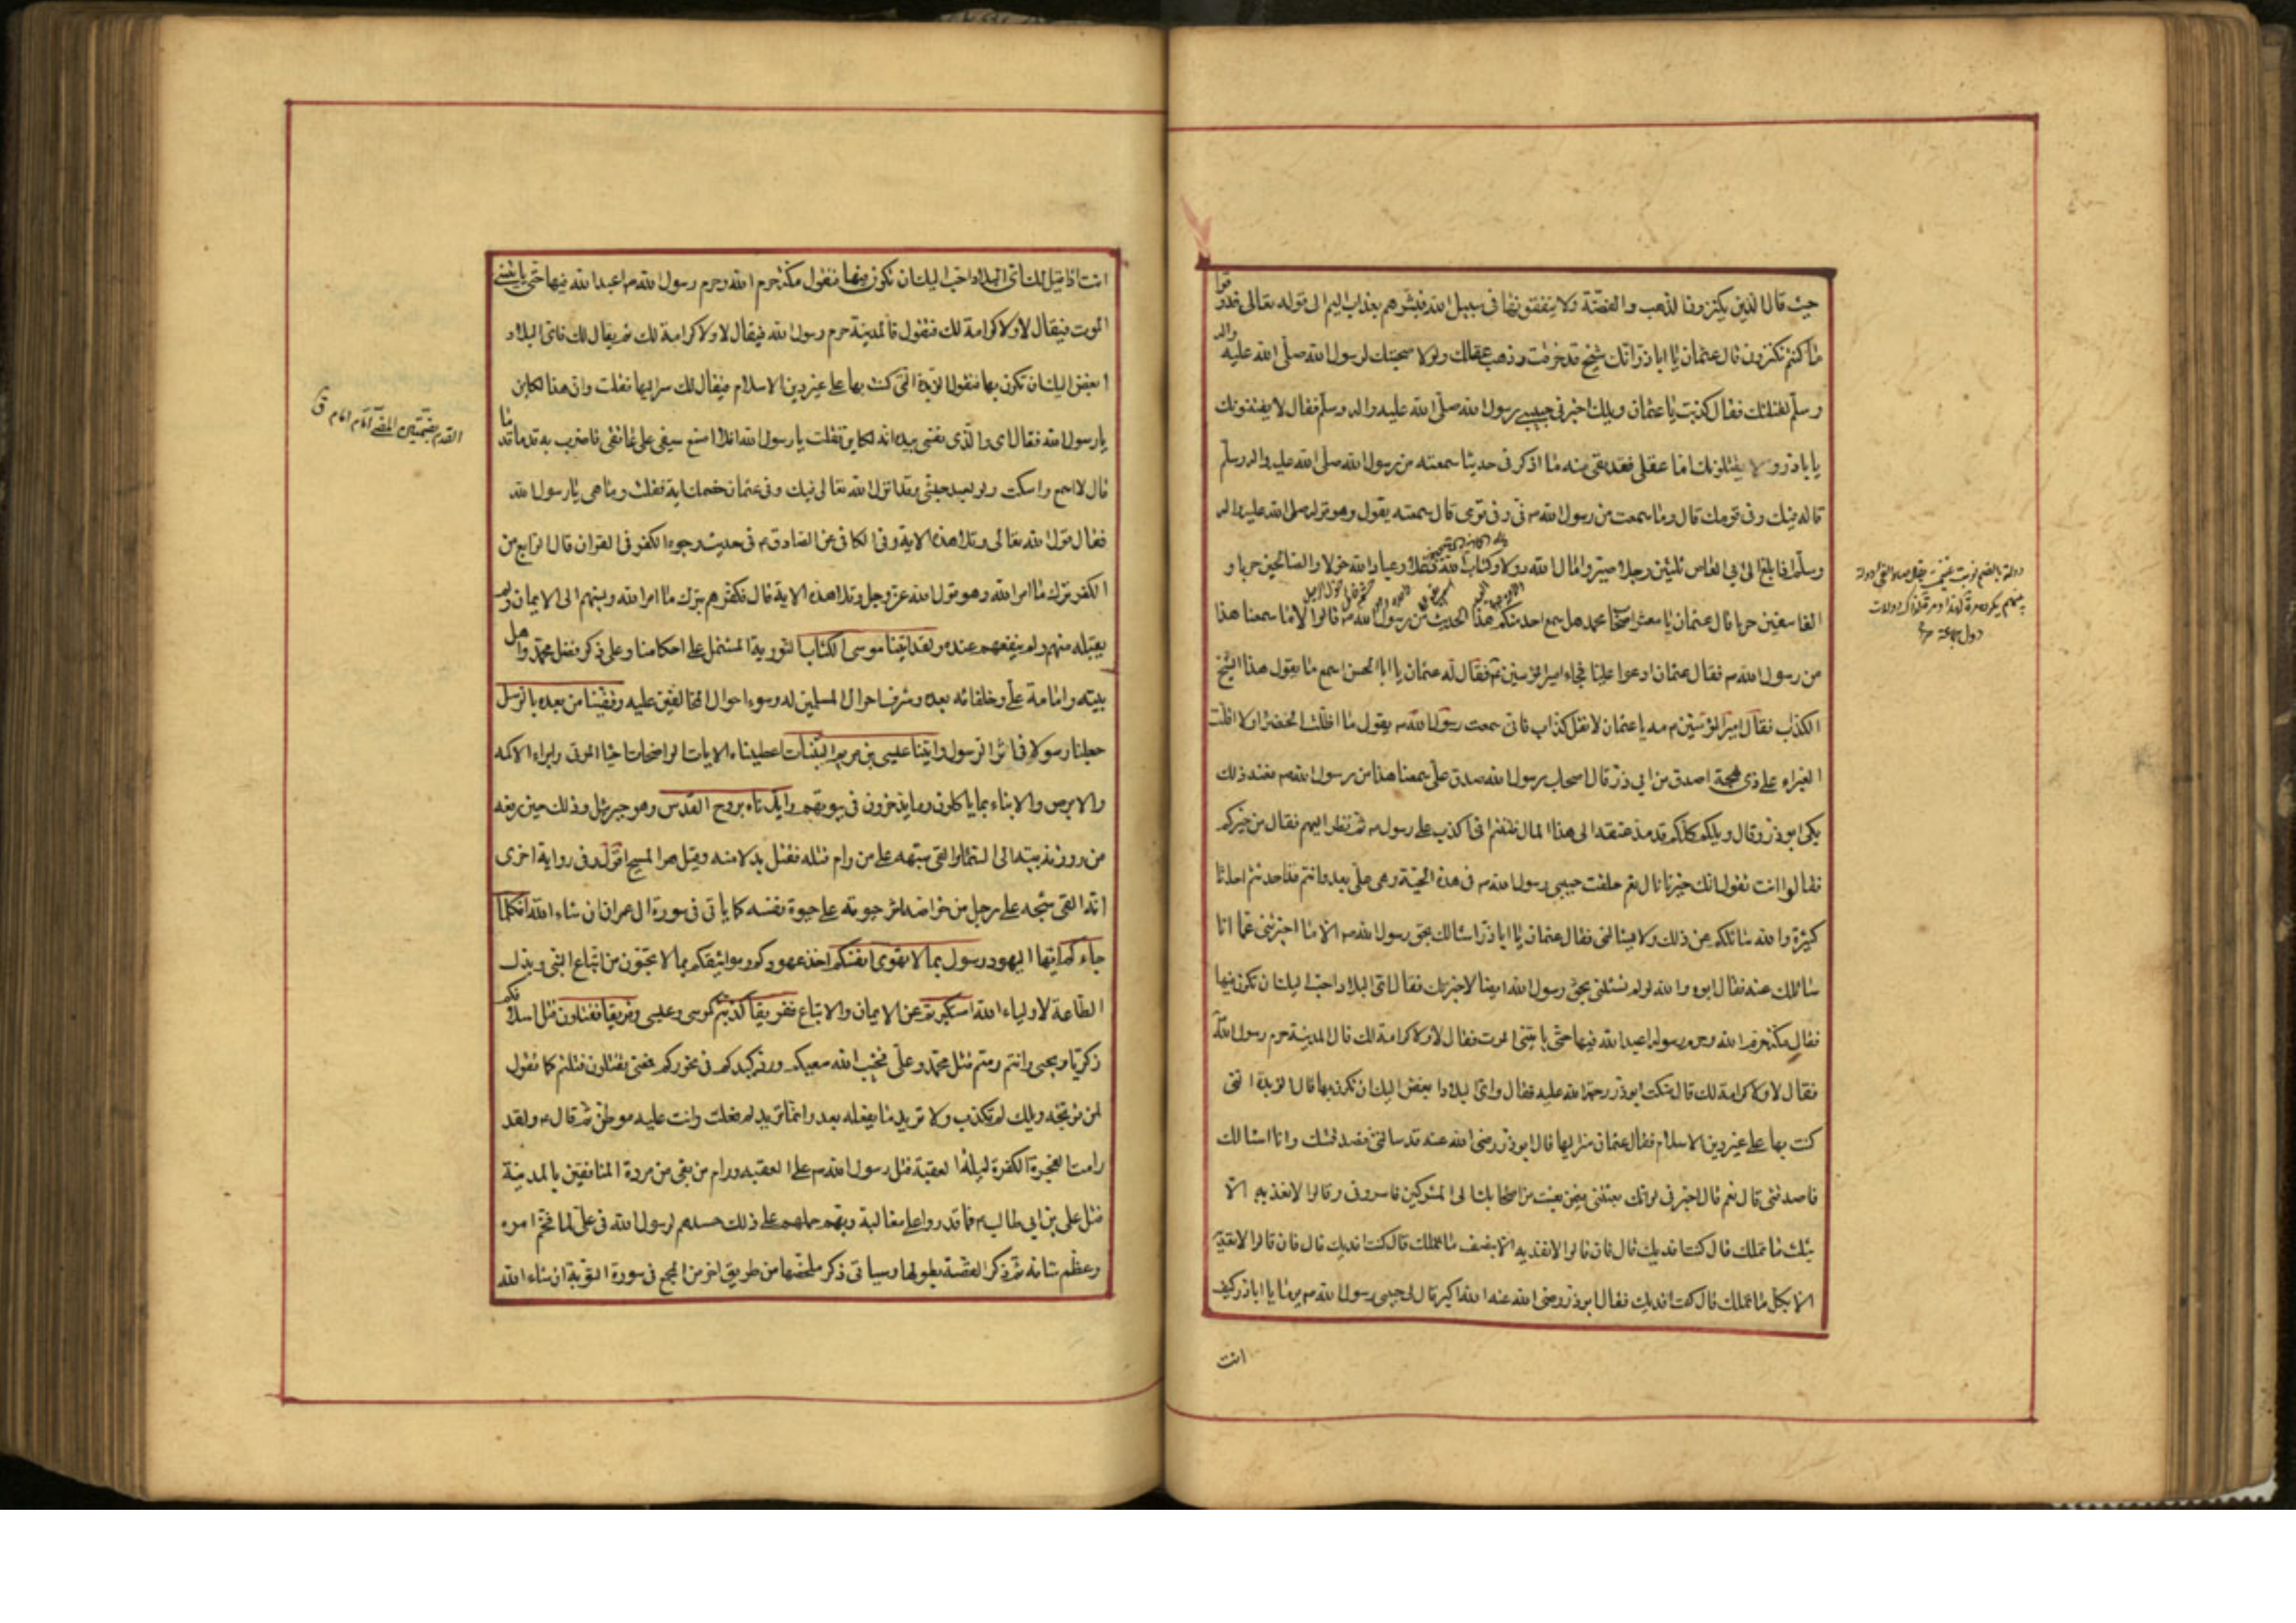 حيث قال الذين يكنزون الذهب والفضّة ولا ينفقونها فى سبيل الله فبشرهم بعذاب اليم الى قوله تعالى فذوقوا
ما كنتم تكنزون قال عثمان يا اباذر انك شيخ قد خرفت وذهب عقلك ولولا صحبتك لرسول الله صلّى الله عليه واله
وسلّم لقتلتك فقال كذبت يا عثمان ويلك اخبرنى حبيبى رسول الله صلّى الله عليه واله وسلّم فقال لا يفتنونك
يا باذر ولا يقتلونك اما عقلى فقد بقى منه ما اذكر فى حديثا سمعته من رسول الله صلّى الله عليه واله وسلّم
قاله فيك وفى قومك قال وما سمعت من رسول الله ص فىّ وفى قومى قال سمعته يقول وهو قوله صلى الله عليه واله
وسلّم اذا بلغ ال ابى العاص ثلثين رجلا صيروا مال الله دولا وكتاب الله دغلا وعباد الله خولا والصالحين حربا و
الفاسقين حزبا قال عثمان يا معشر اصحاب محمد هل سمع احد منكم هذا الحديث من رسول الله ص قالوا لا ما سمعنا هذا
من رسول الله ص فقال عثمان ادعوا عليا فجاء امير المؤمنين ع فقال له عثمان يا ابا الحسن اسمع ما يقول هذا الشيخ
الكذاب فقال امير المؤمنين ع مه يا عثمان لا تقل كذاب فانى سمعت رسول الله ص يقول ما اظلّت الخضراء ولا اقلّت
الغبراء على ذى لهجة اصدق من ابى ذرّ قال اصحاب رسول الله صدق علىّ سمعنا هذا من رسول الله ص فعند ذلك
بكى ابو ذر وقال ويلكم كلّكم قد مدّ عنقه الى هذا المال ظننتم انى اكذب على رسول الله ص ثم نظر اليهم فقال من خيركم
فقالوا انت تقول انك خيرنا قال نعم خلفت حبيبى رسول الله ص فى هذه الجبّة وهى علىّ بعد وانتم قد احدثتم احداثا
كثيرة والله سائلكم عن ذلك ولا يسالنى فقال عثمان يا اباذر اسالك بحق رسول الله ص الا ما اخبرتنى عما انا
سائلك عنه فقال ابوذر والله لو لم تسئلنى بحق رسول الله ايضا لاخبرتك فقال اىّ البلاد احبّ اليك ان تكون فيها
فقال مكة حرم الله وحرم رسوله اعبد الله فيها حتى ياتينى الموت فقال لا ولا كرامة لك قال المدينة حرم رسول الله
فقال لا ولا كرامة لك قال فسكت ابوذر رحمة الله عليه فقال واىّ البلاد ابغض اليك ان تكون بها قال الربذة التى
كنت بها على غير دين الاسلام فقال عثمان سر اليها قال ابوذر رضى الله عنه قد سالتنى فصدقتك وانا اسالك
فاصدقنى قال نعم قال اخبرنى لو انك بعثتنى فيمن بعثت من اصحابك الى المشركين فاسرونى وقالوا لا نفديه الّا
بثلث ما تملك قال كنت افديك قال فان قالوا لا نفديه الا بنصف ما تملك قال كنت افديك قال فان قالوا لا نفديه
الا بكل ما تملك قال كنت افديك فقال ابوذر رضى الله عنه الله اكبر قال لى حبيبى رسول الله ص يوما يا اباذر كيف
انت
انت اذا قيل لك اىّ البلاد احبّ اليك ان تكون فيها فتقول مكّة حرم الله وحرم رسول الله ص اعبد الله فيها حتّى ياتينى
الموت فيقال لا ولا كرامة لك فتقول فالمدينة حرم رسول الله فيقال لا ولا كرامة لك ثم يقال لك فاى البلاد
ابغض اليك ان تكون بها فتقول الربذة التى كنت بها على غير دين الاسلام فيقال لك سر اليها فقلت وان هذا لكاين
يا رسول الله فقال اى والّذى نفسى بيده انه لكاين فقلت يا رسول الله افلا اضع سيفى على عاتقى فاضرب به قدما قدما
قال لا اسمع واسكت ولو لعبد حبشى وقد انزل الله تعالى فيك وفى عثمان خصمك اية فقلت وما هى يا رسول الله
فقال قول الله تعالى وتلا هذه الاية وفى الكافى عن الصادق ع فى حديث وجوه الكفر فى القران قال الرابع من
الكفر ترك ما امر الله وهو قول الله عزّ وجل وتلا هذه الاية قال فكفّرهم بترك ما امر الله ونسبهم الى الايمان ولم
يقبله منهم ولم ينفعهم عنده ولقد اتينا موسى الكتاب التورية المشتمل على احكامنا وعلى ذكر فضل محمّد واهل
بيته وامامة علىّ وخلفائه بعده وشرف احوال المسلمين له وسوء احوال المخالفين عليه وقفّينا من بعده بالرسل
جعلنا رسولا فى اثر الرسول واتينا عيسى بن مريم البيّنات اعطيناه الايات الواضحات احياء الموتى وابراء الاكمه
والابرص والانباء بما ياكلون وما يدخرون فى بيوتهم وايّدناه بروح القدس وهو جبرئيل وذلك حين رفعه
من روزنة بيته الى السّماء والقى شبهه على من رام قتله فقتل بدلا منه وقيل هو المسيح اقول وفى رواية اخرى
انّه القى شبهه على رجل من خواصه اثر حيوته على حيوة نفسه كما ياتى فى سورة ال عمران ان شاء الله افكلّما
جاءكم ايّها اليهود رسول بما لا تهوى انفسكم اخذ عهودكم ومواثيقكم بما لا تحبّون من اتباع النبى وبذل
الطّاعة لاولياء الله استكبرتم عن الايمان والاتباع ففريقا كذبتم كموسى وعيسى وفريقا تقتلون قتل اسلافكم
زكريّا ويحيى وانتم رمتم قتل محمّد وعلىّ فخيّب الله سعيكم وردّ كيدكم فى نحوركم فمعنى تقتلون قتلتم كما تقول
لمن توبّخه ويلك لم تكذب ولا تريد ما يفعله بعد وانّما تريد لم فعلت وانت عليه موطن ثم قال ع ولقد
رامت الفجرة الكفرة ليلة العقبة قتل رسول الله ص على العقبة ورام من بقى من مردة المنافقين بالمدينة
قتل على بن ابى طالب ع فما قدروا على مغالبة ربّهم حملهم على ذلك حسدهم لرسول الله فى علىّ لما فخّم امره
وعظّم شانه ثم ذكر القصّة بطولها وسياتى ذكر ملخصها من طريق اخر من المجمع فى سورة التوبة ان شاء الله